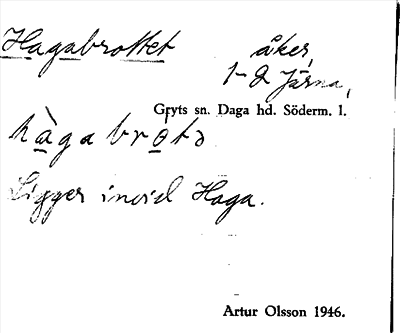 Hagabrottet åker,
1-2 Järna,
Gryts sn. Daga hd. Söderm. l.
hàgabrótə
Ligger invid Haga.
Artur Olsson 1946.